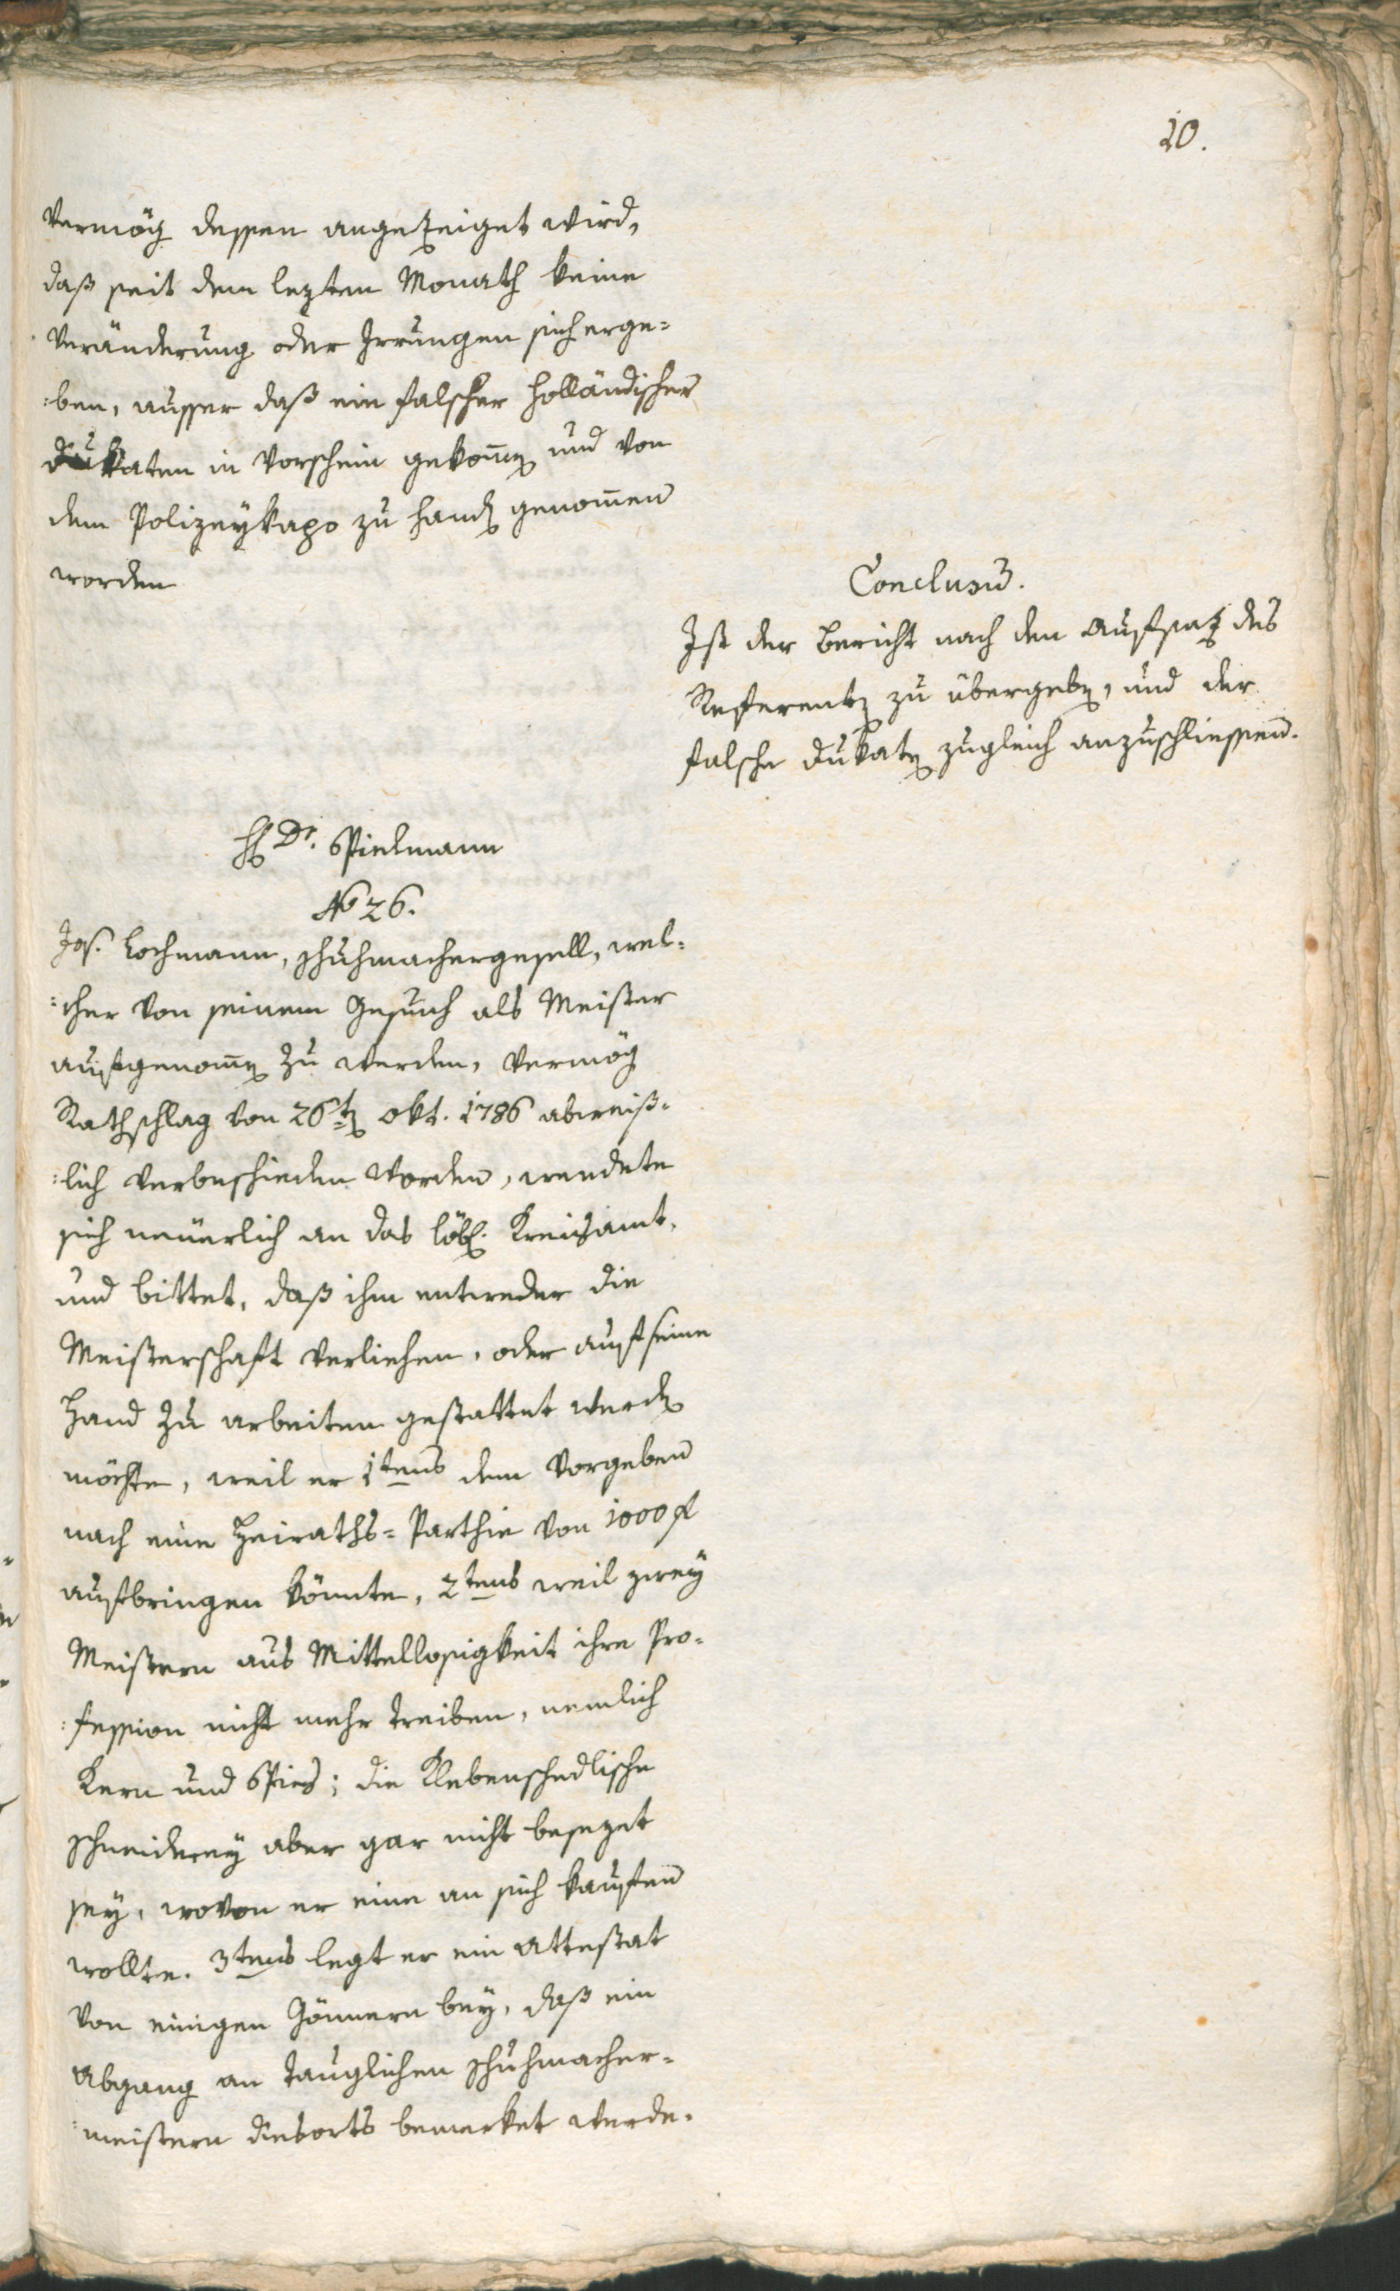 20.
Vermög dessen angezeiget wird,
daß seit dem lezten Monath keine
Veränderung oder Irrungen sich erge=
:ben, ausser daß ein falscher Holländischer
Dukaten in Vorschein gekom̄en und von
dem Polizeykapo zu Handen genom̄en
worden
Conclusum.
Ist der Bericht nach den Aufsatz des
Referenten zu übergeben, und der
falsche Dukaten zugleich anzuschliessen.
H Dr. Spielmann
No 26.
Jos. Lochmann, Schuhmachergesell, wel=
:cher von seinem Gesuch als Meister
aufgenom̄en zu werden, vermög
Rathschlag von 26ten Okt. 1786 abweiß=
:lich verbeschieden worden, wendete
sich neüerlich an das löbl. Kreisamt,
und bittet, daß ihm entweder die
Meisterschaft verliehen, oder auf seine
Hand zu arbeiten gestattet werden
möchte, weil er 1tens dem Vorgeben
nach eine Heiraths=Parthie von 1000 f
aufbringen könnte, 2tens weil zwey
Meistern aus Mittellosigkeit ihre Pro=
:fession nicht mehr treiben, nemlich
Kern und Spies; die Klebenschedlische
Schneiderey aber gar nicht besezet
sey, wovon er eine an sich kaufen
wollte. 3tens legt er ein Attestat
von einigen Gönnern bey, daß ein
Abgang an tauglichen Schuhmacher=
:meistern diesorts bemerket werde.